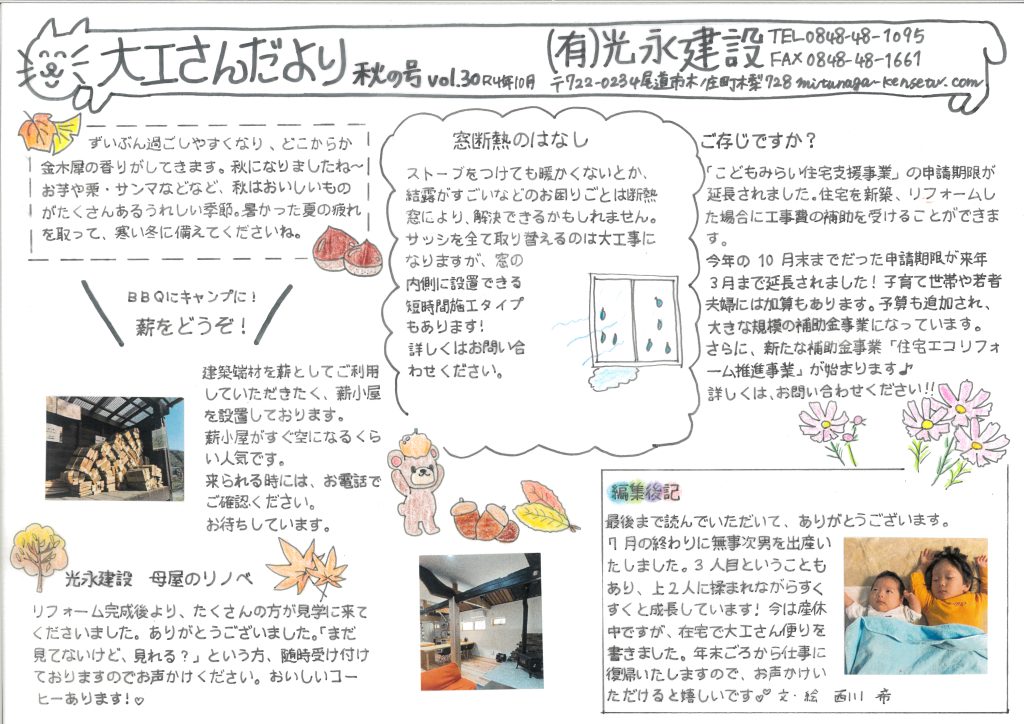 大工さんだより 秋の号 vol.30 R4年10月
(有)光永建設
TEL0848-48-1095
FAX0848-48-1661
〒722-0234尾道市木ノ庄町木梨728 mitunaga-kensetu.com
ずいぶん過ごしやすくなり、どこからか
金木犀の香りがしてきます。秋になりましたね～
お芋や栗・サンマなどなど、秋はおいしいもの
がたくさんあるうれしい季節。暑かった夏の疲れ
を取って、寒い冬に備えてくださいね。
BBQにキャンプに！
薪をどうぞ！
建築端材を薪としてご利用
していただきたく、薪小屋
を設置しております。
薪小屋がすぐ空になるくら
い人気です。
来られる時には、お電話で
ご確認ください。
お待ちしています。
光永建設　母屋のリノベ
リフォーム完成後より、たくさんの方が見学に来て
くださいました。ありがとうございました。「まだ
見てないけど、見れる？」という方、随時受け付け
ておりますのでお声かけください。おいしいコー
ヒーあります！♡
窓断熱のはなし
ストーブをつけても暖かくないとか、
結露がすごいなどのお困りごとは断熱
窓により、解決できるかもしれません。
サッシを全て取り替えるのは大工事に
なりますが、窓の
内側に設置できる
短時間施工タイプ
もあります！
詳しくはお問い合
わせください。
ご存じですか？
「こどもみらい住宅支援事業」の申請期限が
延長されました。住宅を新築、リフォームし
た場合に工事費の補助を受けることができま
す。
今年の 10 月末までだった申請期限が来年
3月まで延長されました！子育て世帯や若者
夫婦には加算もあります。予算も追加され、
大きな規模の補助金事業になっています。
さらに、新たな補助金事業「住宅エコリフォ
ーム推進事業」が始まります♪
詳しくは、お問い合わせください!!
編集後記
最後まで読んでいただいて、ありがとうございます。
7月の終わりに無事次男を出産い
たしました。3人目ということも
あり、上2人に揉まれながらすく
すくと成長しています！今は産休
中ですが、在宅で大工さん便りを
書きました。年末ごろから仕事に
復帰いたしますので、お声かけい
ただけると嬉しいです♡ 文・絵　西川　希